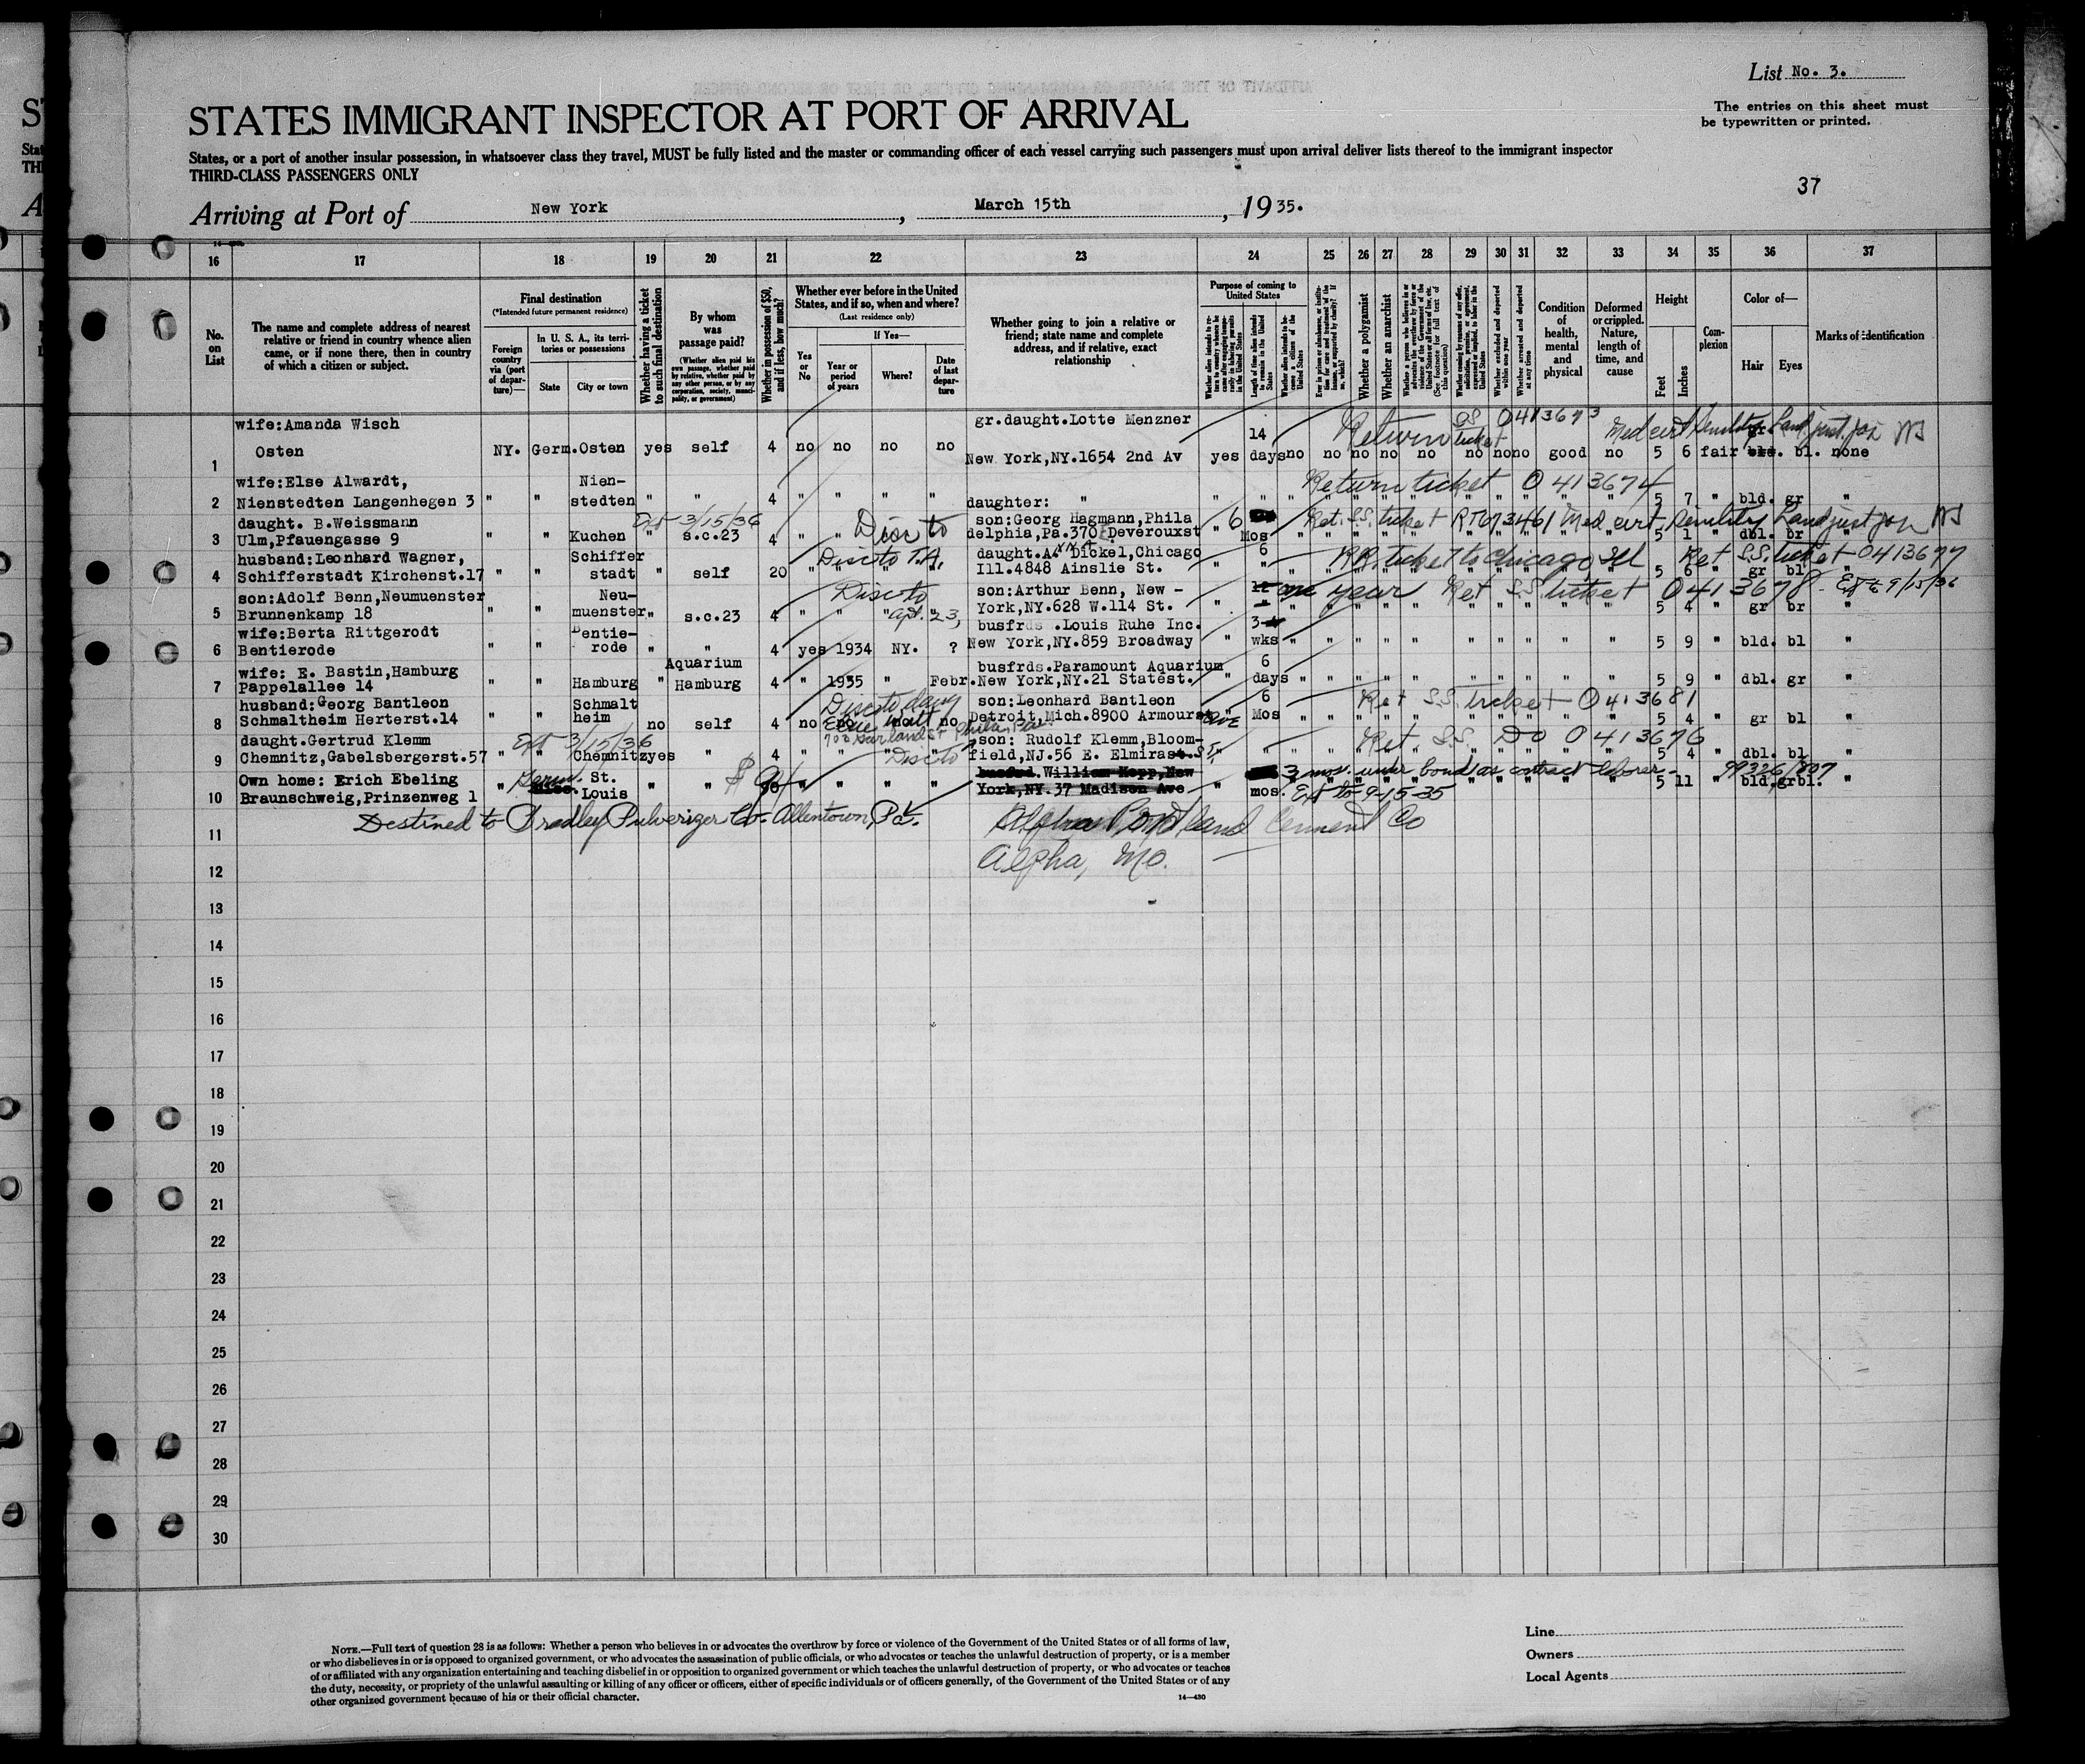 List No. 3.
STATES IMMIGRANT INSPECTOR AT PORT OF ARRIVAL
The entries on this sheet must
be typewritten or printed.
States, or a port of another insular possession, in whatsoever class they travel, MUST be fully listed and the master or commanding officer of each vessel carrying such passengers must upon arrival deliver lists thereof to the immigrant inspector
THIRD-CLASS PASSENGERS ONLY
37
Arriving at Port of New York, March 15th, 1935.
16 17 18 19 20 21 22 23 24 25 26 27 28 29 30 31 32 33 34 35 36 37
No. on List
The name and complete address of nearest relative or friend in country whence alien came, or if none there, then in country of which a citizen or subject.
Final destination
(*Intended future permanent residence)
Foreign country via (port of departure)—
In U. S. A., its territories or possessions
State
City or town
Whether having a ticket to such final destination
By whom was passage paid?
(Whether alien paid his own passage, whether paid by relative, whether paid by any other person, or by any corporation, society, municipality, or government)
Whether in possession of $50, and if less, how much?
Whether ever before in the United States, and if so, when and where?
(Last residence only)
If Yes—
Yes or No
Year or period of years
Where?
Date of last departure
Whether going to join a relative or friend; state name and complete address, and if relative, exact relationship
Purpose of coming to United States
Length of time alien intends to remain in the United States
Whether alien intends to become a citizen of the United States
Whether a polygamist
Whether an anarchist
Whether excluded and deported within one year
Whether arrested and deported at any time
Condition of health, mental and physical
Deformed or crippled. Nature, length of time, and cause
Height
Feet
Inches
Complexion
Color of—
Hair
Eyes
Marks of identification
wife:Amanda Wisch gr.daught.Lotte Menzner Return S.S. ticket 0413673 Med cert Senility
1 Osten NY. Germ. Osten yes self 4 no no no no New York,NY.1654 2nd Av yes 14 days no no no no no no no no good no 5 6 fair gr. bl. none
wife:Else Alwardt, Nien- Return ticket 0413674
2 Nienstedten Langenhegen 3 " " stedten " " 4 " " " " daughter: " " " " 5 7 " bld. gr "
daught. B.Weissmann Ext 3/15/36 Disc to son:Georg Hagmann,Phila 6 Ret. S.S. ticket Med cert, Senility
3 Ulm,Pfauengasse 9 " " Kuchen " s.c.23 4 " " delphia,Pa.370 Deverouxst " Mos 5 1 " dbl. br "
husband:Leonhard Wagner, Schiffer Disc to T.A. daught.Anna Dickel,Chicago 6 RR ticket to Chicago Ill Ret S.S. ticket 0413677
4 Schifferstadt Kirchenst.17 " " stadt " self 20 Ill.4848 Ainslie St. " " 5 6 " gr bl "
son:Adolf Benn,Neumuenster Neu- Disc to son:Arthur Benn, New - one year Ret S.S. ticket 0413678 Ext to 9/15/36
5 Brunnenkamp 18 " " muenster " s.c.23 4 " " York,NY.628 W.114 St. " 5 4 " gr br "
wife:Berta Rittgerodt Bentie- busfrds .Louis Ruhe Inc. 3
6 Bentierode " " rode " " 4 yes 1934 NY. ? New York,NY.859 Broadway " wks " 5 9 " bld. bl "
wife: E. Bastin,Hamburg Aquarium busfrds.Paramount Aquarium 6
7 Pappelallee 14 " " Hamburg " Hamburg 4 " 1935 " Febr. New York,NY.21 Statest. " days " 5 9 " dbl. gr "
husband:Georg Bantleon Schmalt Disc to son:Leonhard Bantleon 6 Ret S.S. ticket 0413681
8 Schmaltheim Herterst.14 " " heim no self 4 no no no Detroit,Mich.8900 Armour Ave " Mos 5 4 " gr bl "
daught.Gertrud Klemm Ext 3/15/36 son: Rudolf Klemm,Bloom- Ret S.S. Do 0413676
9 Chemnitz,Gabelsbergerst.57 " " Chemnitz yes " 4 " " Disc to field,NJ.56 E. Elmirast. 5 4 " dbl. bl "
Own home: Erich Ebeling Germ. St. busfrd.William Kopp,New 3 mos. under bond as contract laborer - 99326/807
10 Braunschweig,Prinzenweg 1 " Louis " " $ 90 " " " " York,NY.37 Madison Ave " mos. Ext to 9-15-35 5 11 " bld. grbl. "
Destined to Bradley Pulverizer Co. Allentown, Pa. Alpha Portland Cement Co
11
Alpha, Mo.
12
13
14
15
16
17
18
19
20
21
22
23
24
25
26
27
28
29
30
NOTE.—Full text of question 28 is as follows: Whether a person who believes in or advocates the overthrow by force or violence of the Government of the United States or of all forms of law,
or who disbelieves in or is opposed to organized government, or who advocates the assassination of public officials, or who advocates or teaches the unlawful destruction of property, or is a member
of or affiliated with any organization entertaining and teaching disbelief in or opposition to organized government or which teaches the unlawful destruction of property, or who advocates or teaches
the duty, necessity, or propriety of the unlawful assaulting or killing of any officer or officers, either of specific individuals or of officers generally, of the Government of the United States or of any
other organized government because of his or their official character.
14—430
Line
Owners
Local Agents